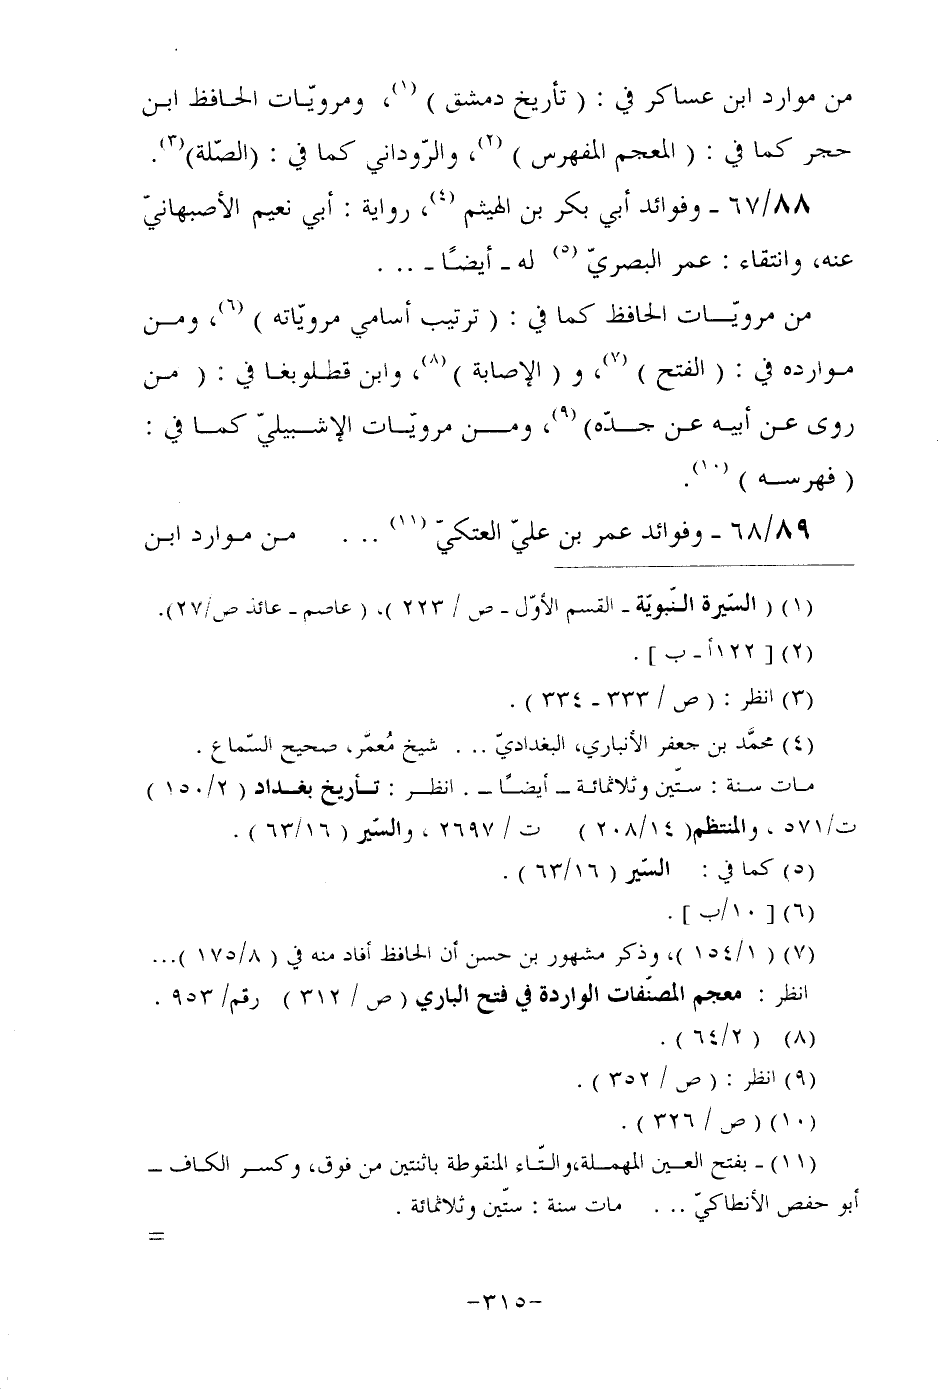 من موارد ابن عساكر في : ( تأريخ دمشق ) (١)، ومرويّات الحافظ ابن
حجر كما في : ( المعجم المفهرس ) (٢)، والرّوداني كما في : (الصّلة)(٣).
٦٧/٨٨ ـ وفوائد أبي بكر بن الهيثم (٤)، رواية : أبي نعيم الأصبهانيّ
عنه، وانتقاء : عمر البصريّ (٥) له ـ أيضًا ـ ... .
من مرويّات الحافظ كما في : ( ترتيب أسامي مرويّاته ) (٦)، ومن
موارده في : ( الفتح ) (٧)، و ( الإصابة ) (٨)، وابن قطلوبغا في : ( من
روى عن أبيه عن جدّه) (٩)، ومن مرويّات الإشبيليّ كما في :
( فهرسه ) (١٠).
٦٨/٨٩ ـ وفوائد عمر بن عليّ العتكيّ (١١) ... . من موارد ابن
(١) ( السّيرة النّبويّة ـ القسم الأوّل ـ ص / ٢٢٣ )، ( عاصم ـ عائذ ص/٢٧).
(٢) [ ١٢٢أ ـ ب ] .
(٣) انظر : ( ص / ٣٣٣ ـ ٣٣٤ ) .
(٤) محمَّد بن جعفر الأنباري، البغداديّ ... . شيخ مُعمّر، صحيح السّماع .
مات سنة : ستّين وثلاثمائة ـ أيضًا ـ . انظر : تأريخ بغداد ( ١٥٠/٢ )
ت/٥٧١ ، والمنتظم( ٢٠٨/١٤ ) ت / ٢٦٩٧ ، والسّير ( ٦٣/١٦ ) .
(٥) كما في : السّير ( ٦٣/١٦ ) .
(٦) [ ١٠/ب ] .
(٧) ( ١٥٤/١ )، وذكر مشهور بن حسن أن الحافظ أفاد منه في ( ١٧٥/٨ )...
انظر : معجم المصنّفات الواردة في فتح الباري ( ص / ٣١٢ ) رقم/ ٩٥٣ .
(٨) ( ٦٤/٢ ) .
(٩) انظر : ( ص / ٣٥٢ ) .
(١٠) ( ص / ٣٢٦ ) .
(١١) ـ بفتح العين المهملة، والتّاء المنقوطة باثنتين من فوق، وكسر الكاف ـ
أبو حفص الأنطاكيّ ... . مات سنة : ستّين وثلاثمائة .
=
-٣١٥-